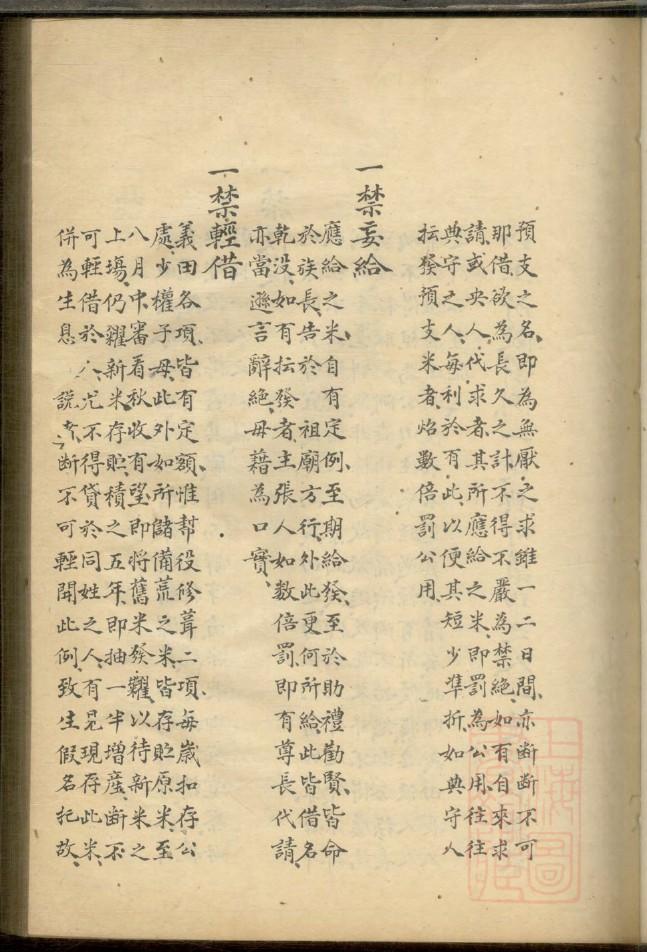 預支之名、即為無厭之求雖一二日間、亦断断不可
那借、欲為長久之計、不得不嚴為禁絕、如有自來求
請、或央人代求者、其所應給之米、即罰為公用、往往
典守之人、每利於有此、以便其短少準折、如典守人
抎發預支米者、炤數倍罰公用、
一禁妄給
應給之米、自有定例、至期給發、至於助禮勸賢、皆命
於族長、告於祖廟方行、外此更何所給、此皆借名
乾没、如有抎發者、主張人如數倍罰、即有尊長代請、
亦當遜言辭絕、毋藉為口實、
一禁輕借
義田各項、皆有定額、惟幇役修葺二項、每歲扣存公
處、少權子母、此外如所儲備荒之米、皆存貯原米、至
八月中、審看秋收有望、即將舊米發糶、以待新米之
上塲、仍糴新米存貯、積之五年、即抽一半增産、断不
可輕借於人、尤不得貸於同姓之人、有見現存此米、
併為生息之說者、断不可輕開此例、致生假名紀故、